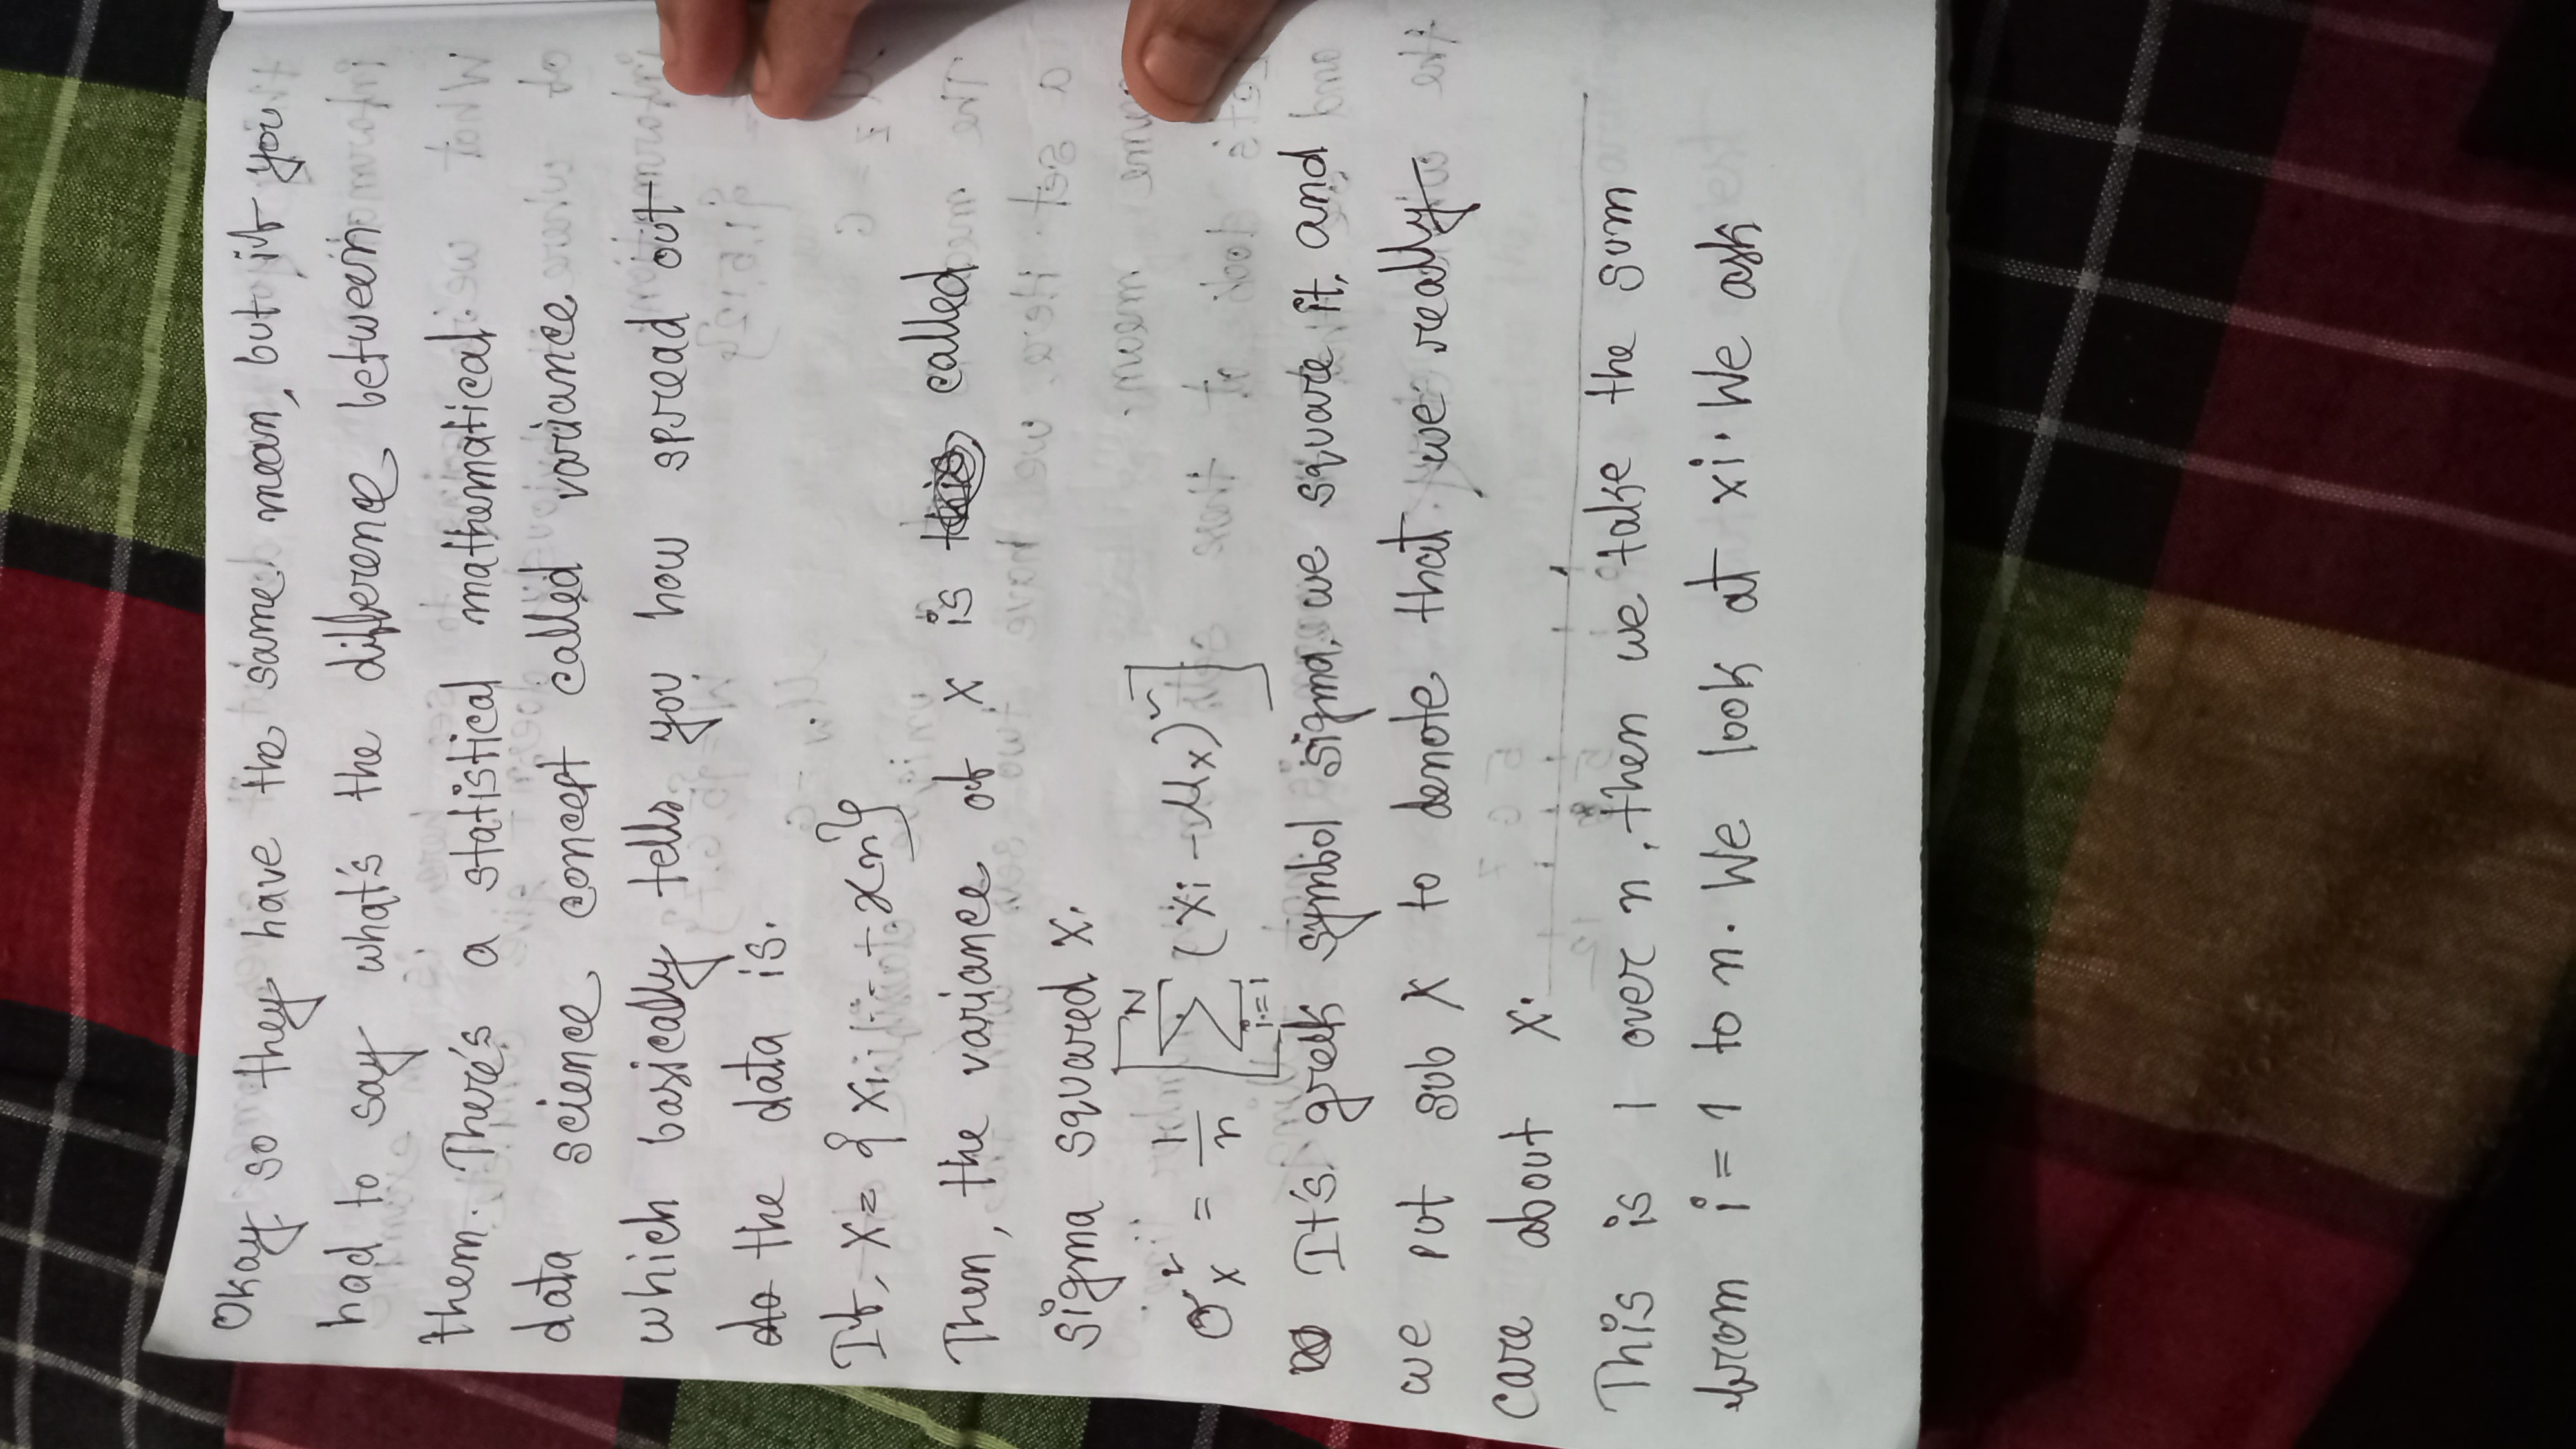 Okay so they have the same mean, but if you
had to say what's the difference between
them. There's a statistical mathematical
data science concept called variance
which basically tells you how spread out
do the data is.
If, X = {x1 ..... xn}
Then, the variance of X is this called
sigma squared X.
σx² = 1/n [ N Σ i=1 (xi - μx)² ]
It's greek symbol sigma, we square it, and
we put sub X to denote that we really
care about X.
This is 1 over n, then we take the sum
from i = 1 to n. We look at xi. We ask